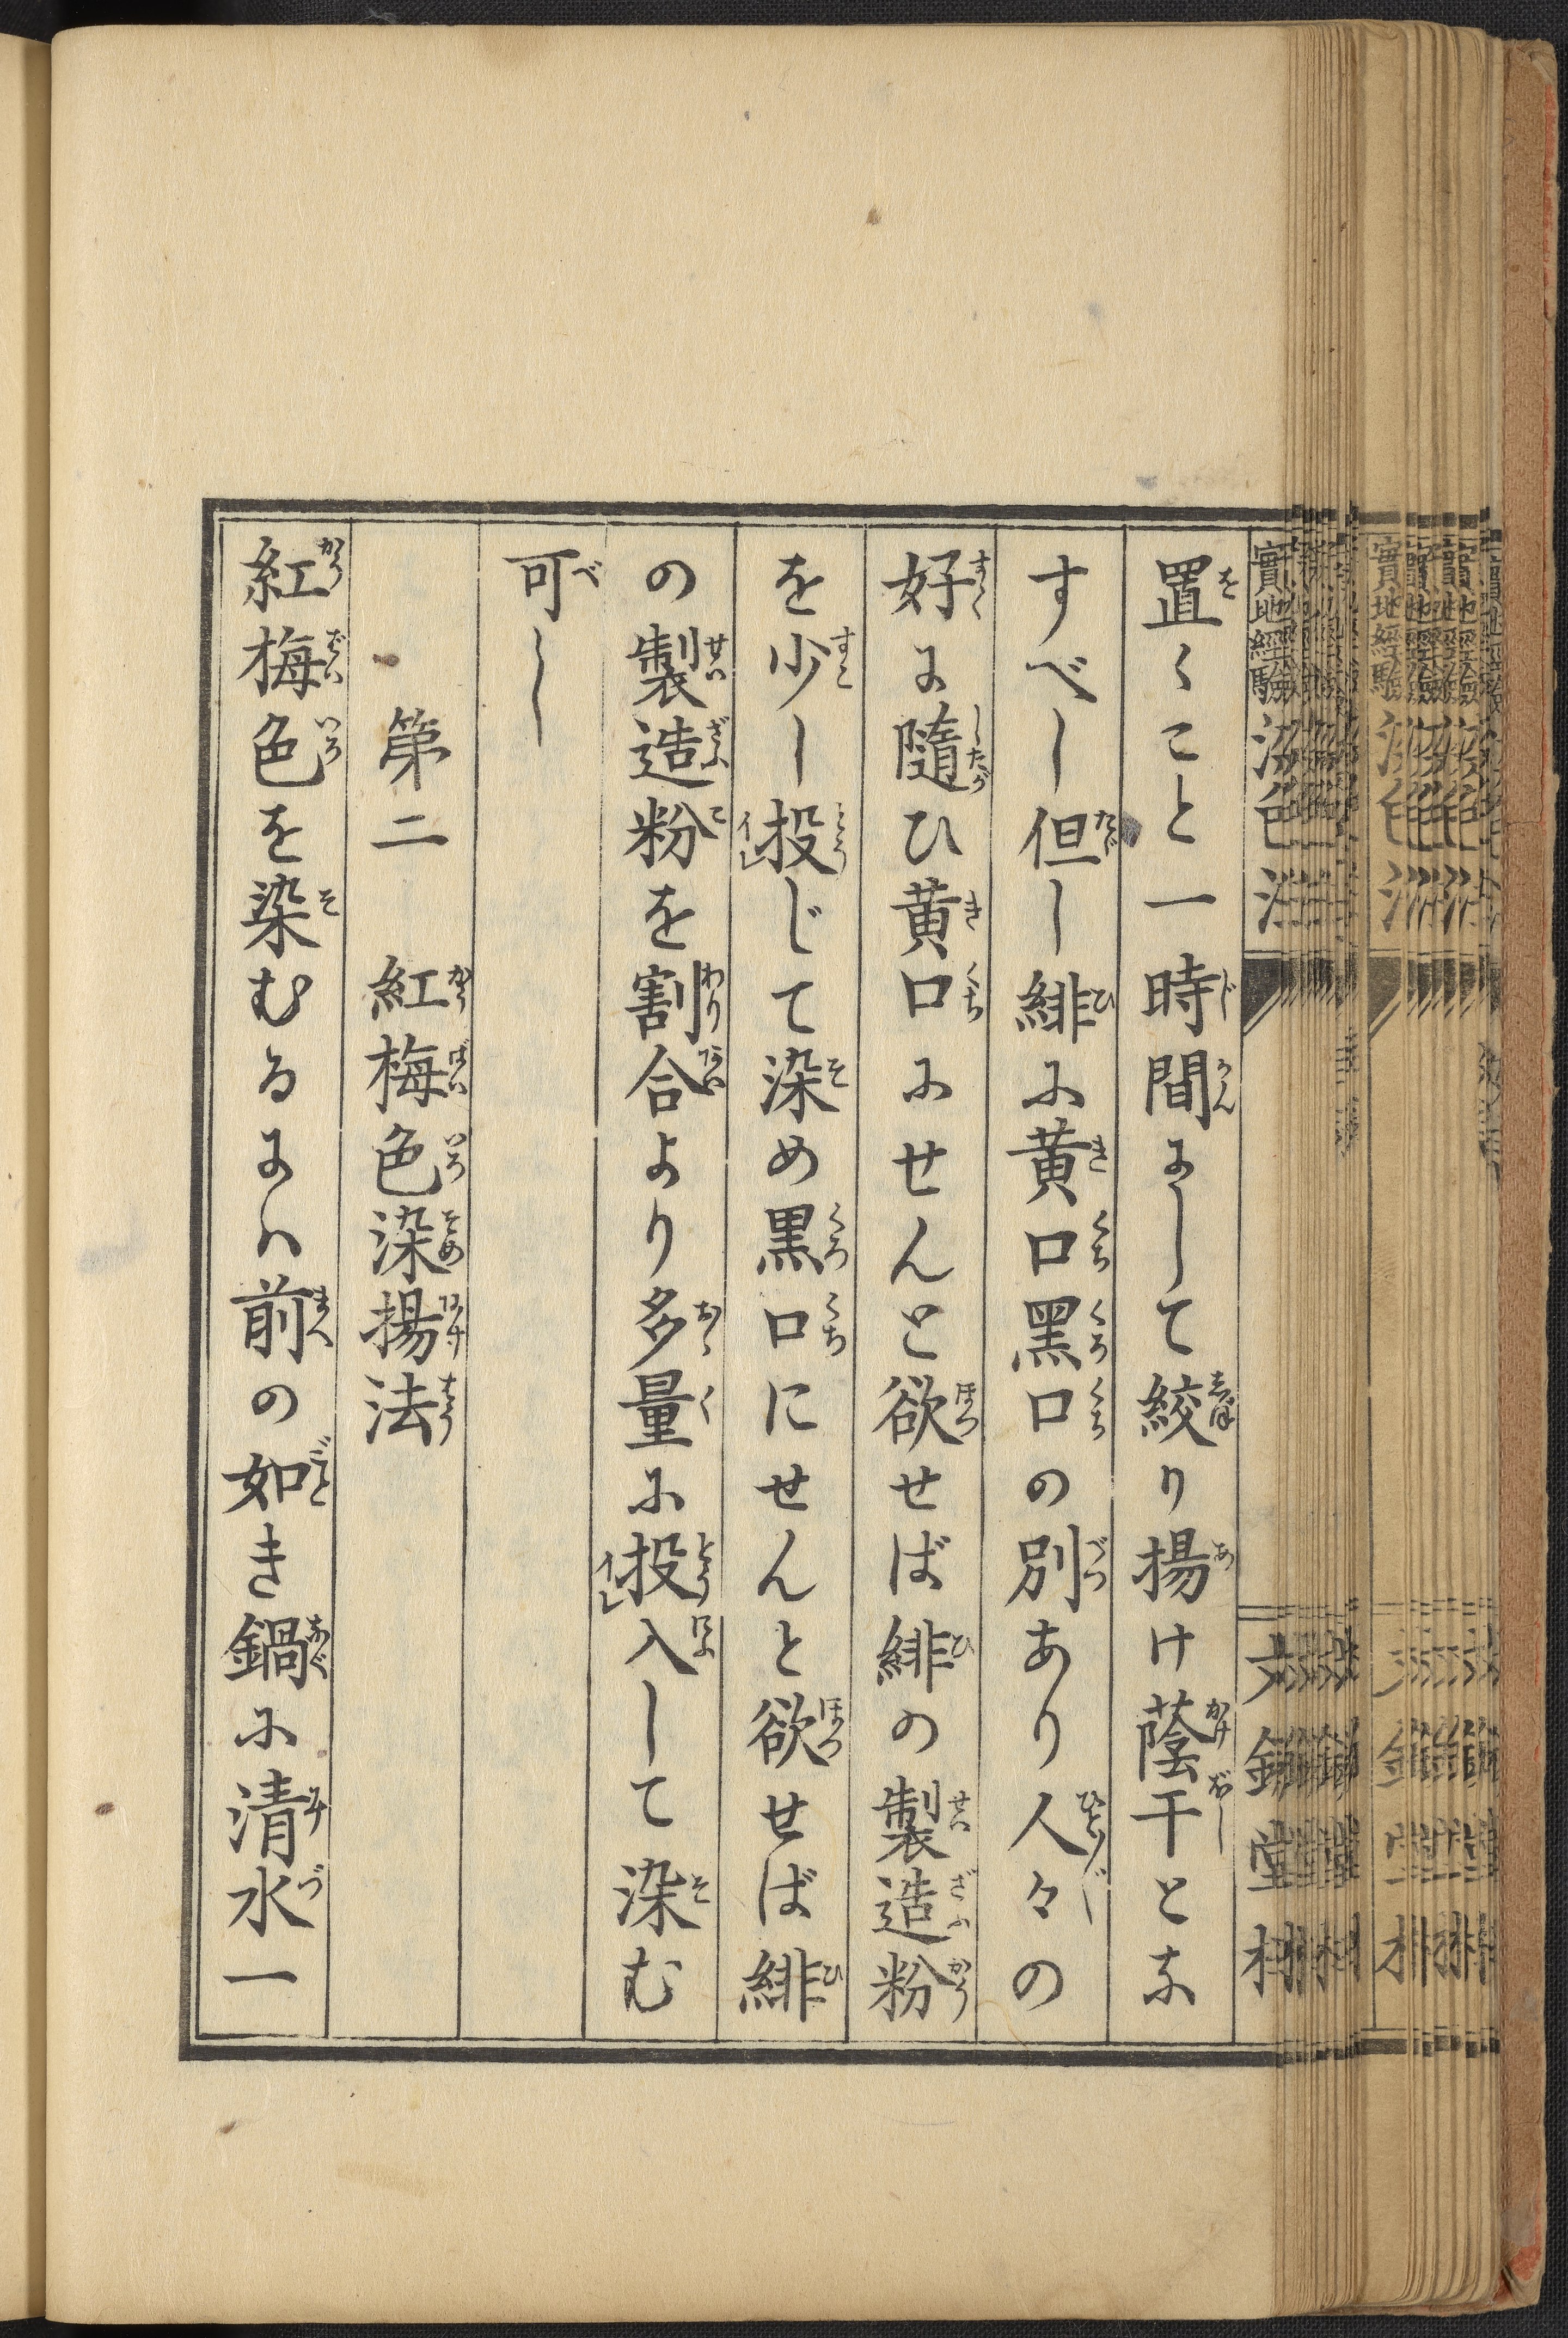 置くこと一時間にして絞り揚け蔭干とな
すべし但し緋に黄口黑口の別あり人々の
好に隨ひ黄口にせんと欲せば緋の製造粉
を少し投じて染め黒口にせんと欲せば緋
の製造粉を割合より多量に投入して染む
可し
第二 紅梅色染揚法
紅梅色を染むるにハ前の如き鍋に清水一